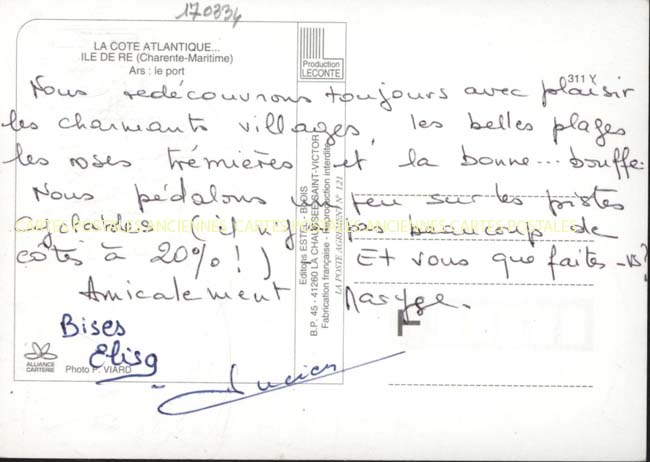 170334
LA COTE ATLANTIQUE...
ILE DE RE (Charente-Maritime)
Ars : le port
Production
LECONTE
311 Y
Nous redécouvrons toujours avec plaisir
les charmants villages, les belles plages
les roses trémières et la bonne... bouffe.
Nous pédalons un peu sur les pistes
cyclables (il n'y a pas beaucoup de
côtes à 20% !) Et vous que faites-vs?
Amicalement Maryse.
Bises
Elisa
Lucien
CARTES POSTALES ANCIENNES CARTES POSTALES ANCIENNES CARTES POSTALES
Editions ESTEL - BLOIS
B.P. 45 - 41260 LA CHAUSSÉE SAINT-VICTOR
Fabrication française - Reproduction interdite
LA POSTE AGRÉMENT N° 121
T
ALLIANCE
CARTERIE
Photo P. VIARD